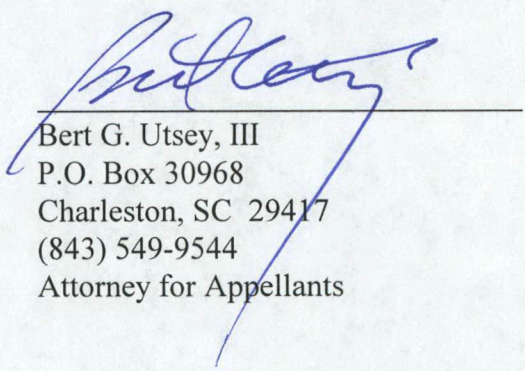 Bert G. Utsey, III
P.O. Box 30968
Charleston, SC 29417
(843) 549-9544
Attorney for Appellants